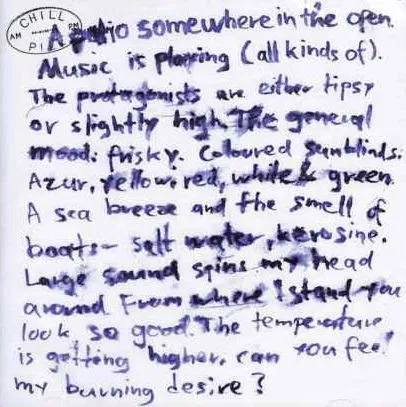 CHILL
AM PM
P.I.
A patio somewhere in the open.
Music is playing (all kinds of).
The protagonists are either tipsy
or slightly high. The general
mood: frisky. Coloured sunblinds.
Azur, yellow, red, white & green.
A sea breeze and the smell of
boats – salt water, kerosine.
Large sound spins my head
around. From where I stand you
look so good. The temperature
is getting higher. can you feel
my burning desire?